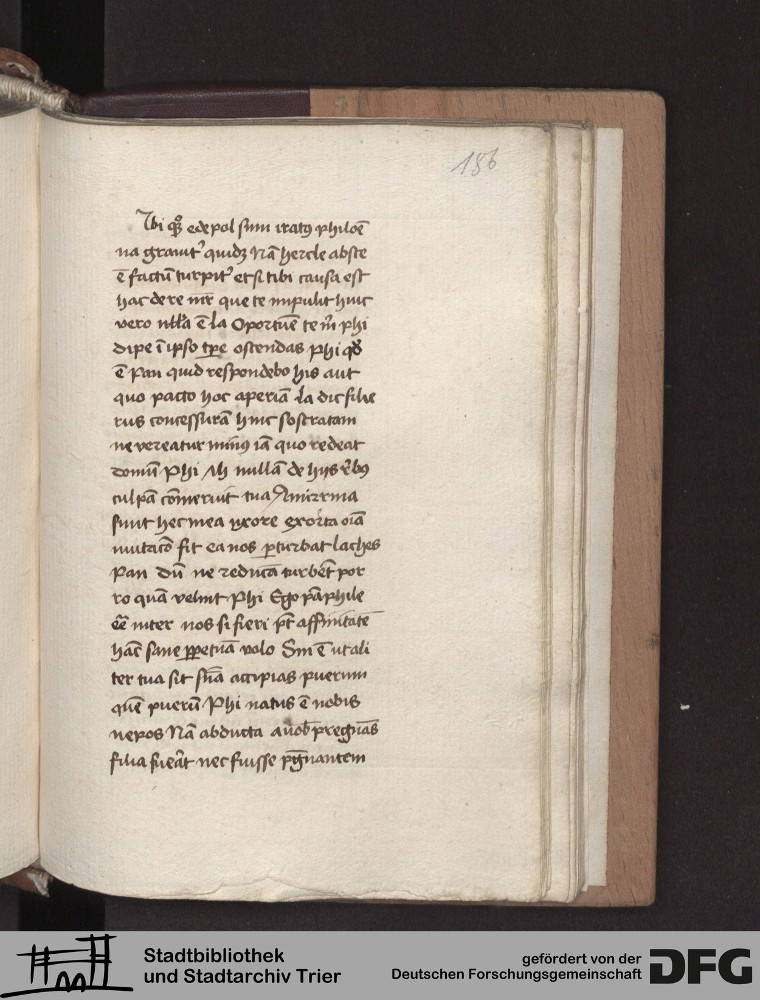 186
Tibi quoque edepol sum iratus philoē
na grauiter quidem Nā hercle abste
ē factū turpiter etsi tibi causa est
hac de re mr que te impulit huic
vero nlla ē la Oportūe te m phi
dipe ī ipso tpe ostendas Phi qd
ē Pan quid respondebo his aut
quo pacto hoc aperiā la dic file
rus concessurā hinc sostratam
ne vereatur minus iā quo redeat
domū Phi Ah nullā de hijs rebus
culpā cōmeruit tua Amirrina
sunt hec mea uxore exorta oīa
mutacō fit ea nos perturbat laches
Pan dū ne reducā turbēt por
ro quā velint Phi Ego pāphile
eē inter nos si fieri pt affinitatē
hāc sane perpetuā volo Sin ē ut ali
ter tua sit sn̄a accipias puerum
quē puerū Phi natus ē nobis
nepos Nā abducta a vob pregnās
filia fuerat nec fuisse pregnantem
Stadtbibliothek
und Stadtarchiv Trier
gefördert von der
Deutschen Forschungsgemeinschaft
DFG